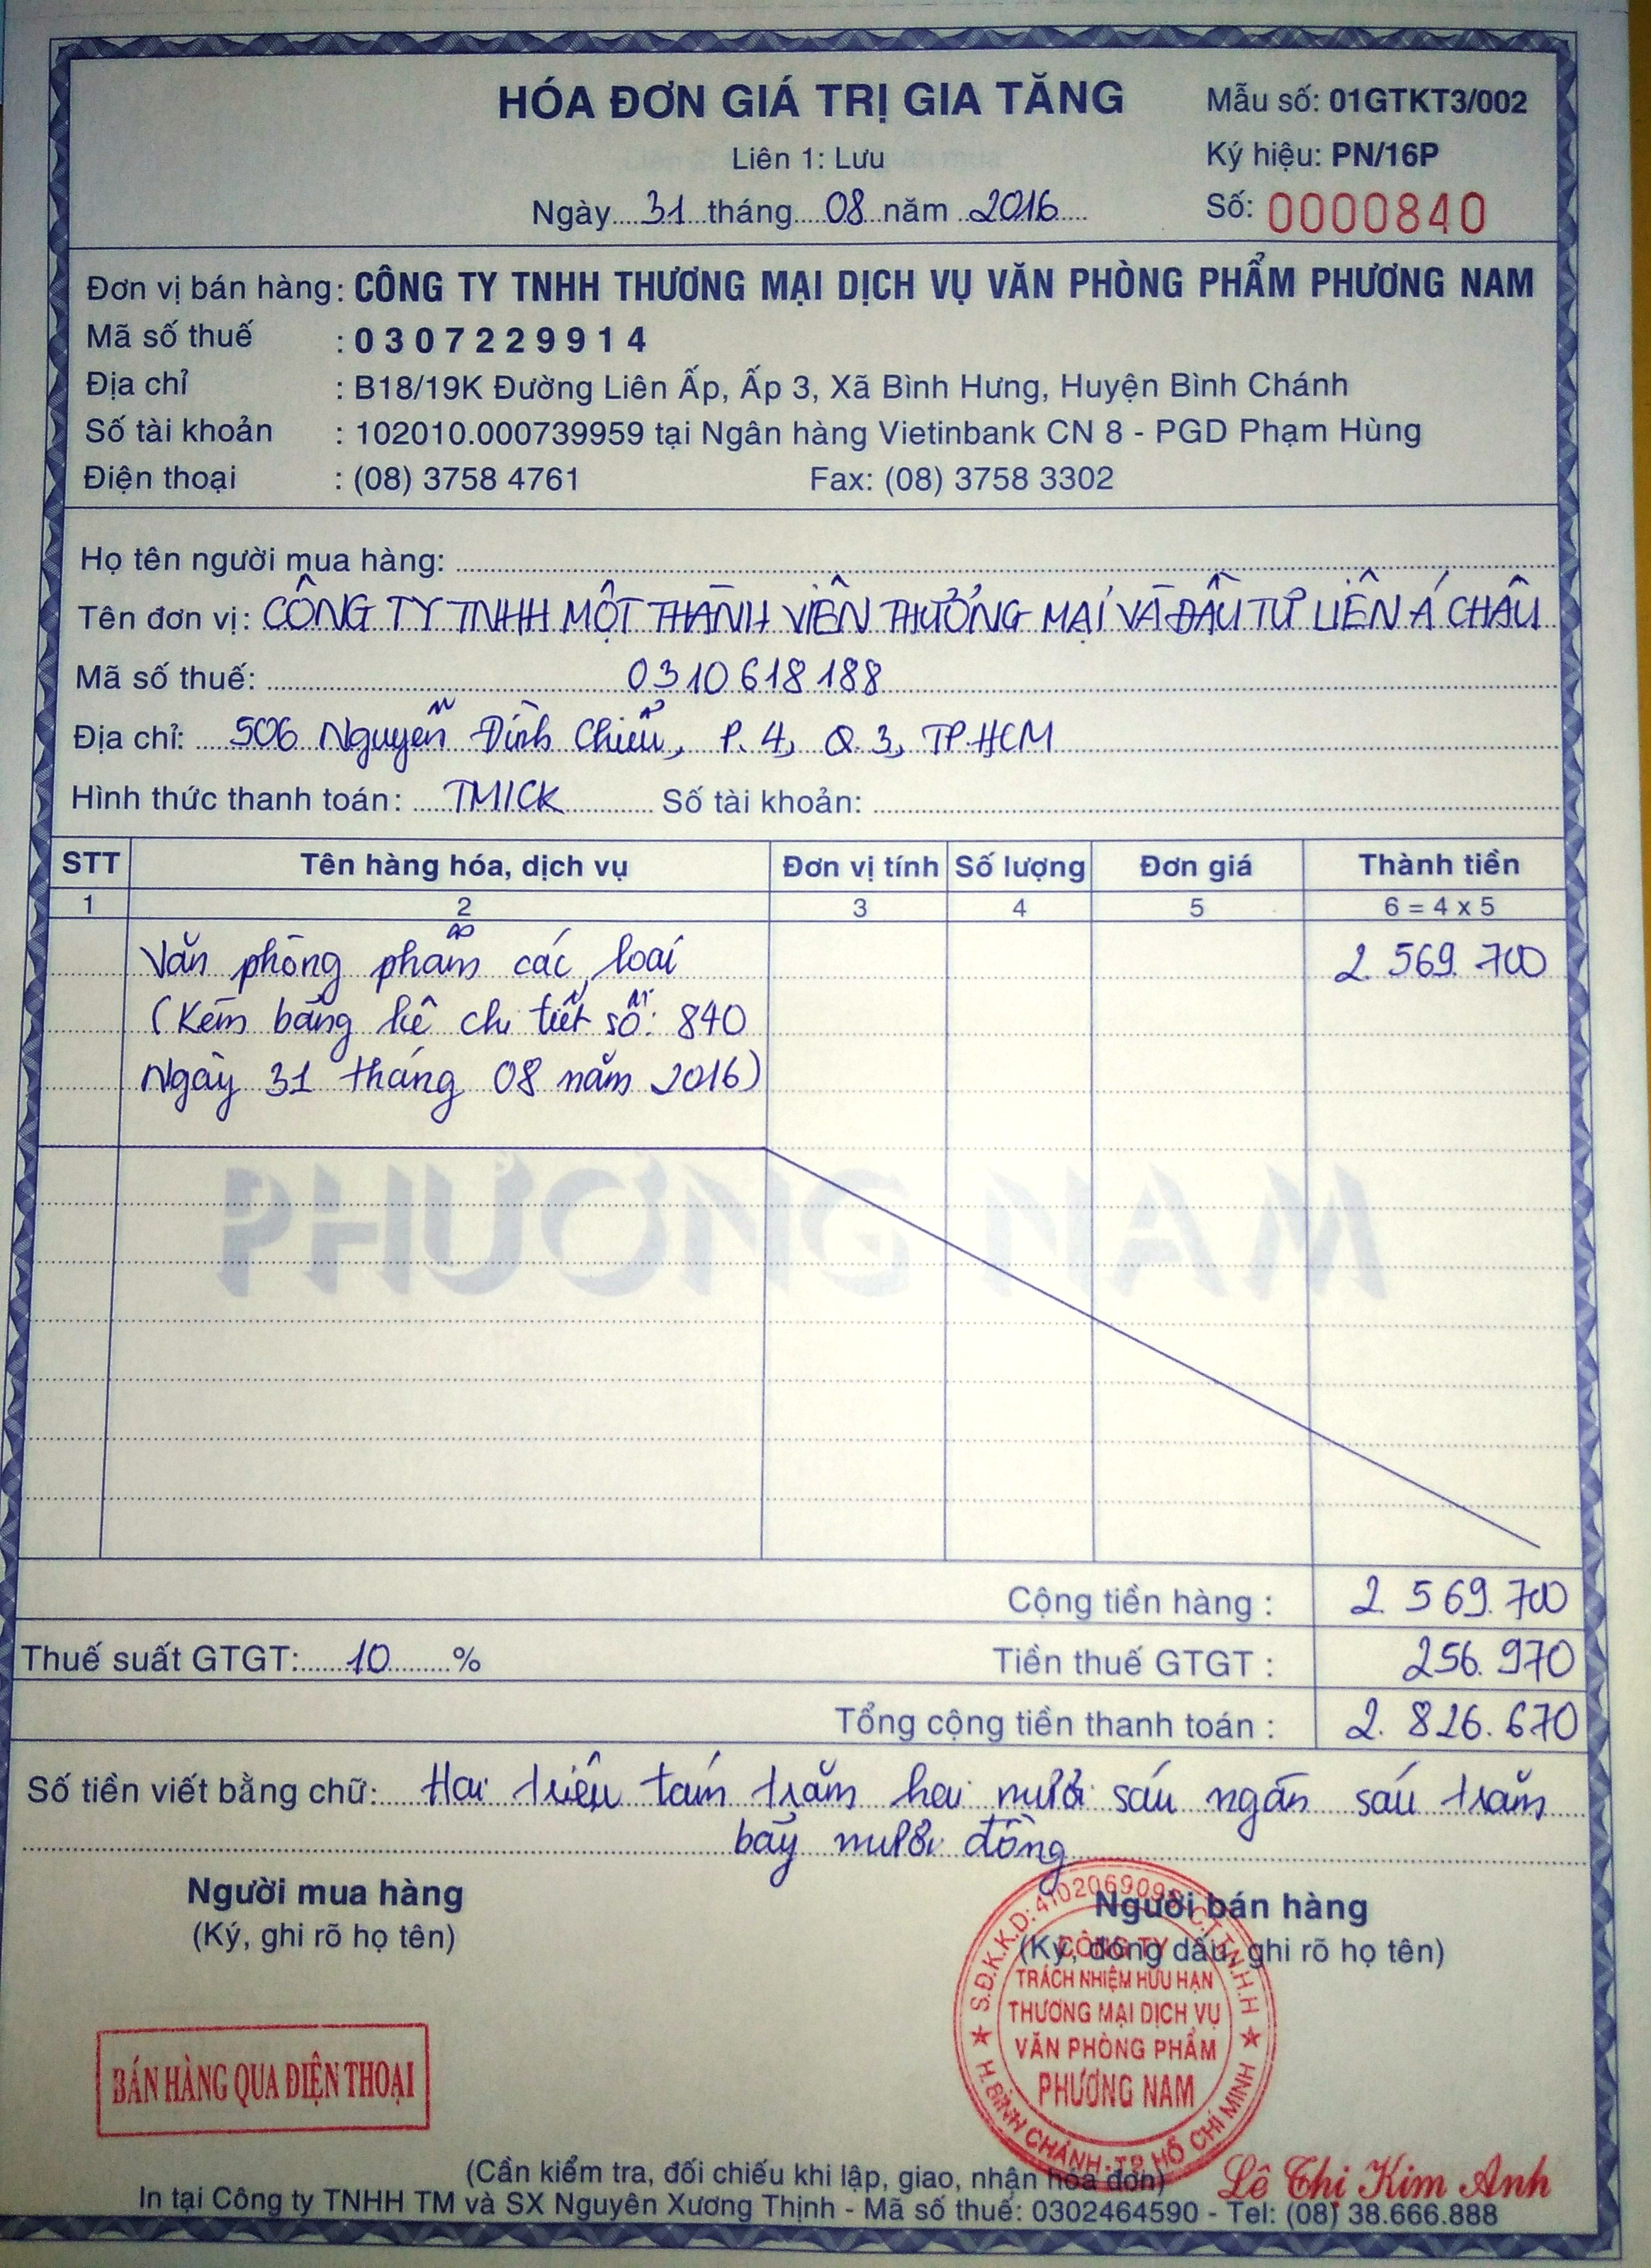 HÓA ĐƠN GIÁ TRỊ GIA TĂNG
Mẫu số: 01GTKT3/002
Liên 1: Lưu
Ký hiệu: PN/16P
Ngày....31...tháng....08...năm ..2016....
Số: 0000840
Đơn vị bán hàng: CÔNG TY TNHH THƯƠNG MẠI DỊCH VỤ VĂN PHÒNG PHẨM PHƯƠNG NAM
Mã số thuế : 0 3 0 7 2 2 9 9 1 4
Địa chỉ : B18/19K Đường Liên Ấp, Ấp 3, Xã Bình Hưng, Huyện Bình Chánh
Số tài khoản : 102010.000739959 tại Ngân hàng Vietinbank CN 8 - PGD Phạm Hùng
Điện thoại : (08) 3758 4761 Fax: (08) 3758 3302
Họ tên người mua hàng:
Tên đơn vị: CÔNG TY TNHH MỘT THÀNH VIÊN THƯƠNG MẠI VÀ ĐẦU TƯ LIÊN Á CHÂU
Mã số thuế: 0310618188
Địa chỉ: 506 Nguyễn Đình Chiểu, P.4, Q.3, TP.HCM
Hình thức thanh toán: TM/CK Số tài khoản:
STT Tên hàng hóa, dịch vụ Đơn vị tính Số lượng Đơn giá Thành tiền
1 2 3 4 5 6 = 4 x 5
Văn phòng phẩm các loại 2.569.700
(Kèm bảng kê chi tiết số: 840
Ngày 31 tháng 08 năm 2016)
PHƯƠNG NAM
Cộng tiền hàng : 2.569.700
Thuế suất GTGT:......10........% Tiền thuế GTGT : 256.970
Tổng cộng tiền thanh toán : 2.826.670
Số tiền viết bằng chữ: Hai triệu tám trăm hai mươi sáu ngàn sáu trăm
bảy mươi đồng
Người mua hàng
(Ký, ghi rõ họ tên)
Người bán hàng
(Ký, đóng dấu, ghi rõ họ tên)
BÁN HÀNG QUA ĐIỆN THOẠI
CÔNG TY
TRÁCH NHIỆM HỮU HẠN
THƯƠNG MẠI DỊCH VỤ
VĂN PHÒNG PHẨM
PHƯƠNG NAM
H.BÌNH CHÁNH-TP.HỒ CHÍ MINH
Lê Thị Kim Anh
(Cần kiểm tra, đối chiếu khi lập, giao, nhận hóa đơn)
In tại Công ty TNHH TM và SX Nguyên Xương Thịnh - Mã số thuế: 0302464590 - Tel: (08) 38.666.888